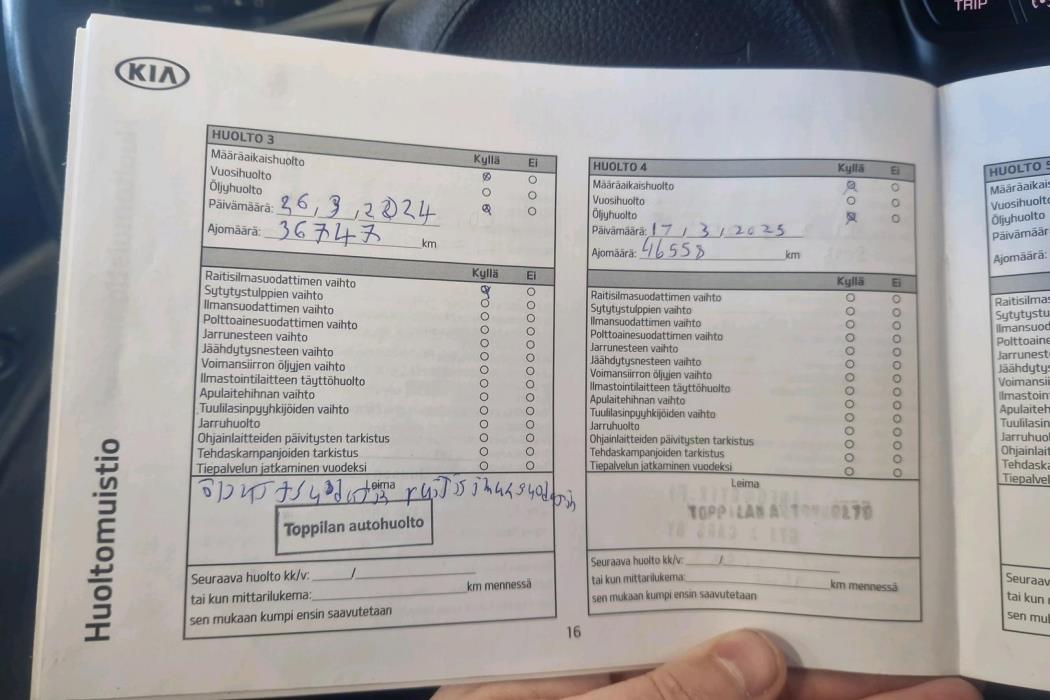 TRIP
KIA
Huoltomuistio
HUOLTO 3
Kyllä Ei
Määräaikaishuolto
Vuosihuolto
Öljyhuolto
Päivämäärä: 26,3,2024
Ajomäärä: 36747 km
Kyllä Ei
Raitisilmasuodattimen vaihto
Sytytystulppien vaihto
Ilmansuodattimen vaihto
Polttoainesuodattimen vaihto
Jarrunesteen vaihto
Jäähdytysnesteen vaihto
Voimansiirron öljyjen vaihto
Ilmastointilaitteen täyttöhuolto
Apulaitehihnan vaihto
Tuulilasinpyyhkijöiden vaihto
Jarruhuolto
Ohjainlaitteiden päivitysten tarkistus
Tehdaskampanjoiden tarkistus
Tiepalvelun jatkaminen vuodeksi
Leima
Toppilan autohuolto
Seuraava huolto kk/v: /
tai kun mittarilukema: km mennessä
sen mukaan kumpi ensin saavutetaan
HUOLTO 4
Kyllä Ei
Määräaikaishuolto
Vuosihuolto
Öljyhuolto
Päivämäärä: 17,3,2025
Ajomäärä: 46558 km
Kyllä Ei
Raitisilmasuodattimen vaihto
Sytytystulppien vaihto
Ilmansuodattimen vaihto
Polttoainesuodattimen vaihto
Jarrunesteen vaihto
Jäähdytysnesteen vaihto
Voimansiirron öljyjen vaihto
Ilmastointilaitteen täyttöhuolto
Apulaitehihnan vaihto
Tuulilasinpyyhkijöiden vaihto
Jarruhuolto
Ohjainlaitteiden päivitysten tarkistus
Tehdaskampanjoiden tarkistus
Tiepalvelun jatkaminen vuodeksi
Leima
TOPPILAN AUTOHUOLTO
Seuraava huolto kk/v: /
tai kun mittarilukema: km mennessä
sen mukaan kumpi ensin saavutetaan
16
HUOLTO 5
Määräaikais
Vuosihuolto
Öljyhuolto
Päivämäär
Ajomäärä:
Raitisilma
Sytytystu
Ilmansuod
Polttoaine
Jarrunest
Jäähdyty
Voimansii
Ilmastoin
Apulaiteh
Tuulilasin
Jarruhuol
Ohjainlait
Tehdask
Tiepalvel
Seuraav
tai kun
sen mul